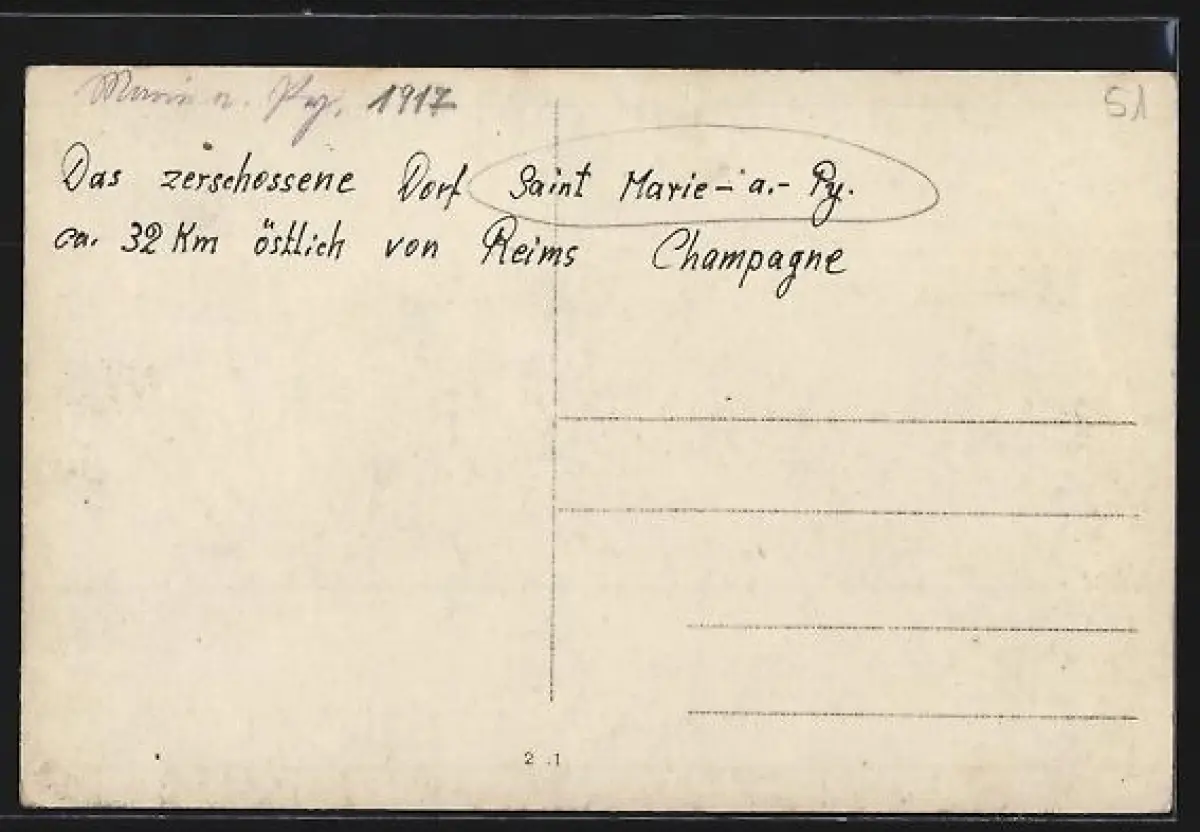 Marie a. Py. 1917
51
Das zerschossene Dorf Saint Marie-a.-Py.
ca. 32 Km östlich von Reims Champagne
2 .1